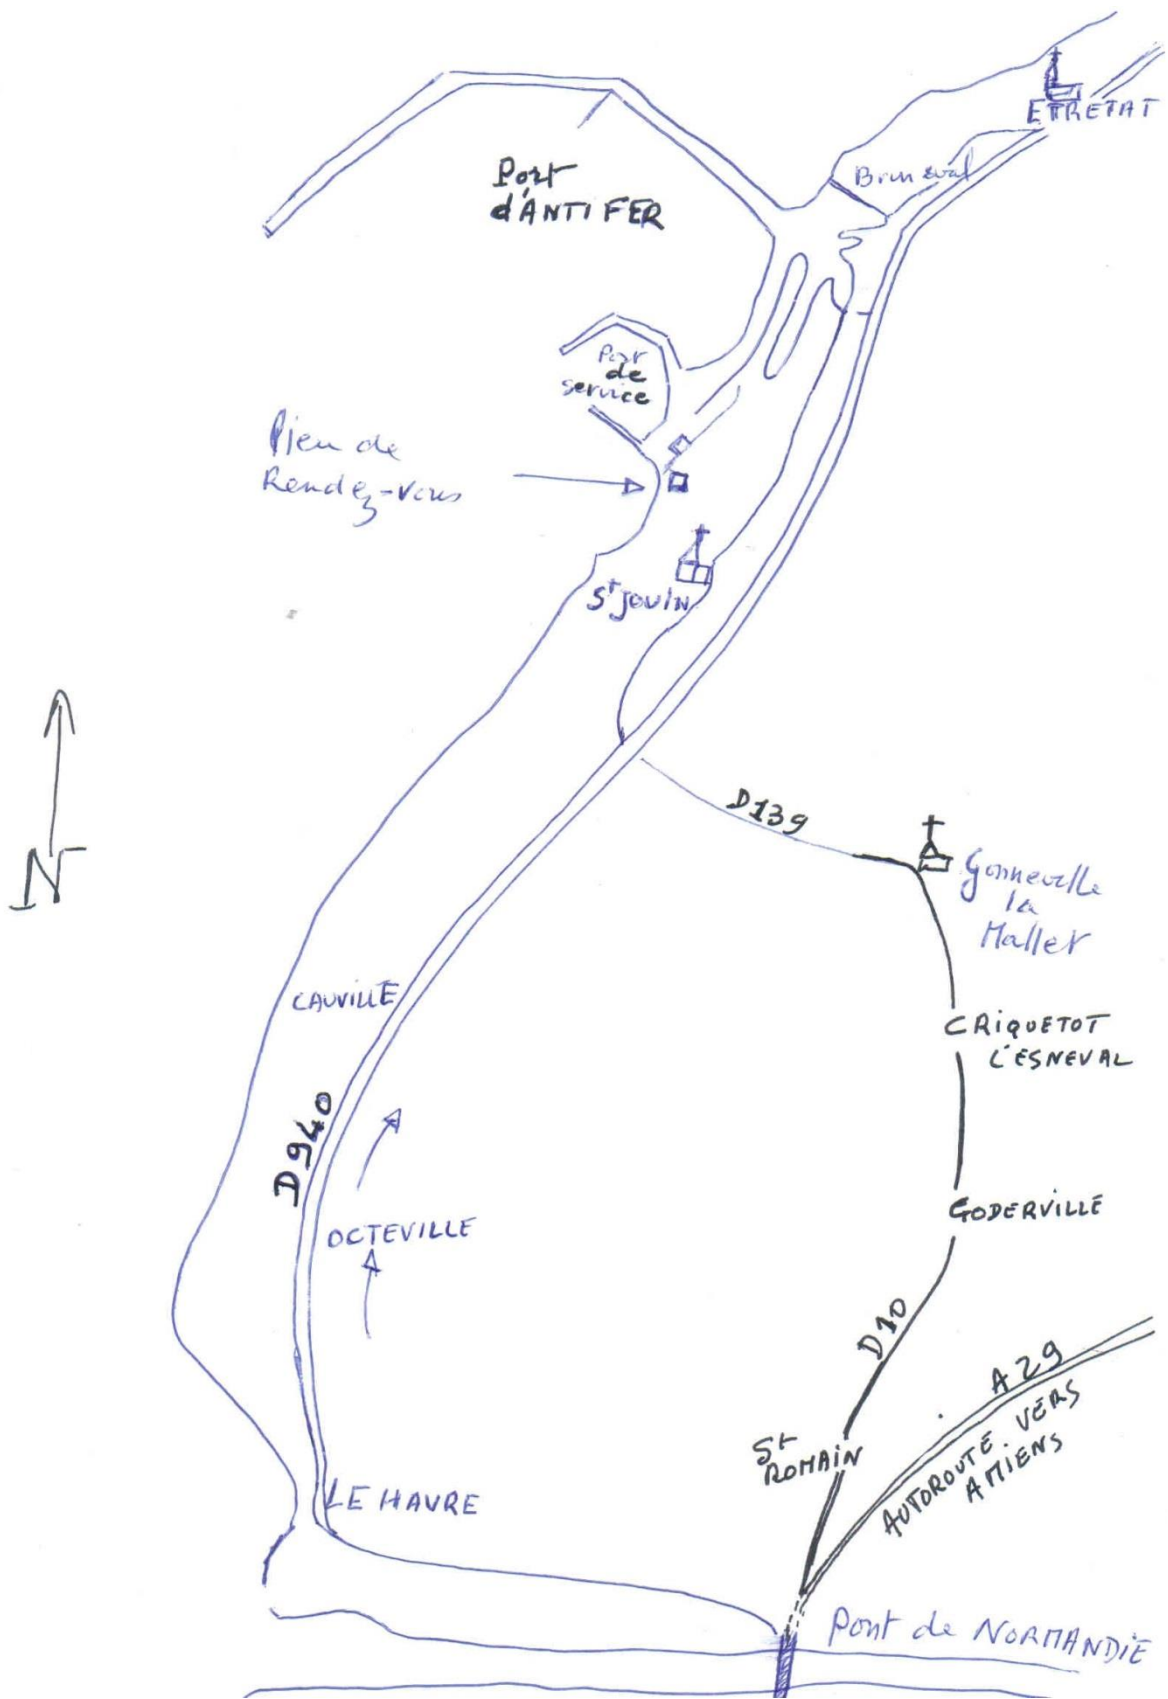 ETRETAT
Bruneval
Port
d'ANTIFER
Port
de
service
Lieu de
Rendez-vous
St JOUIN
D139
Gonneville
la
Mallet
N
CAUVILLE
CRIQUETOT
L'ESNEVAL
D940
GODERVILLE
OCTEVILLE
D10
A29
AUTOROUTE VERS
AMIENS
St
ROMAIN
LE HAVRE
Pont de NORMANDIE